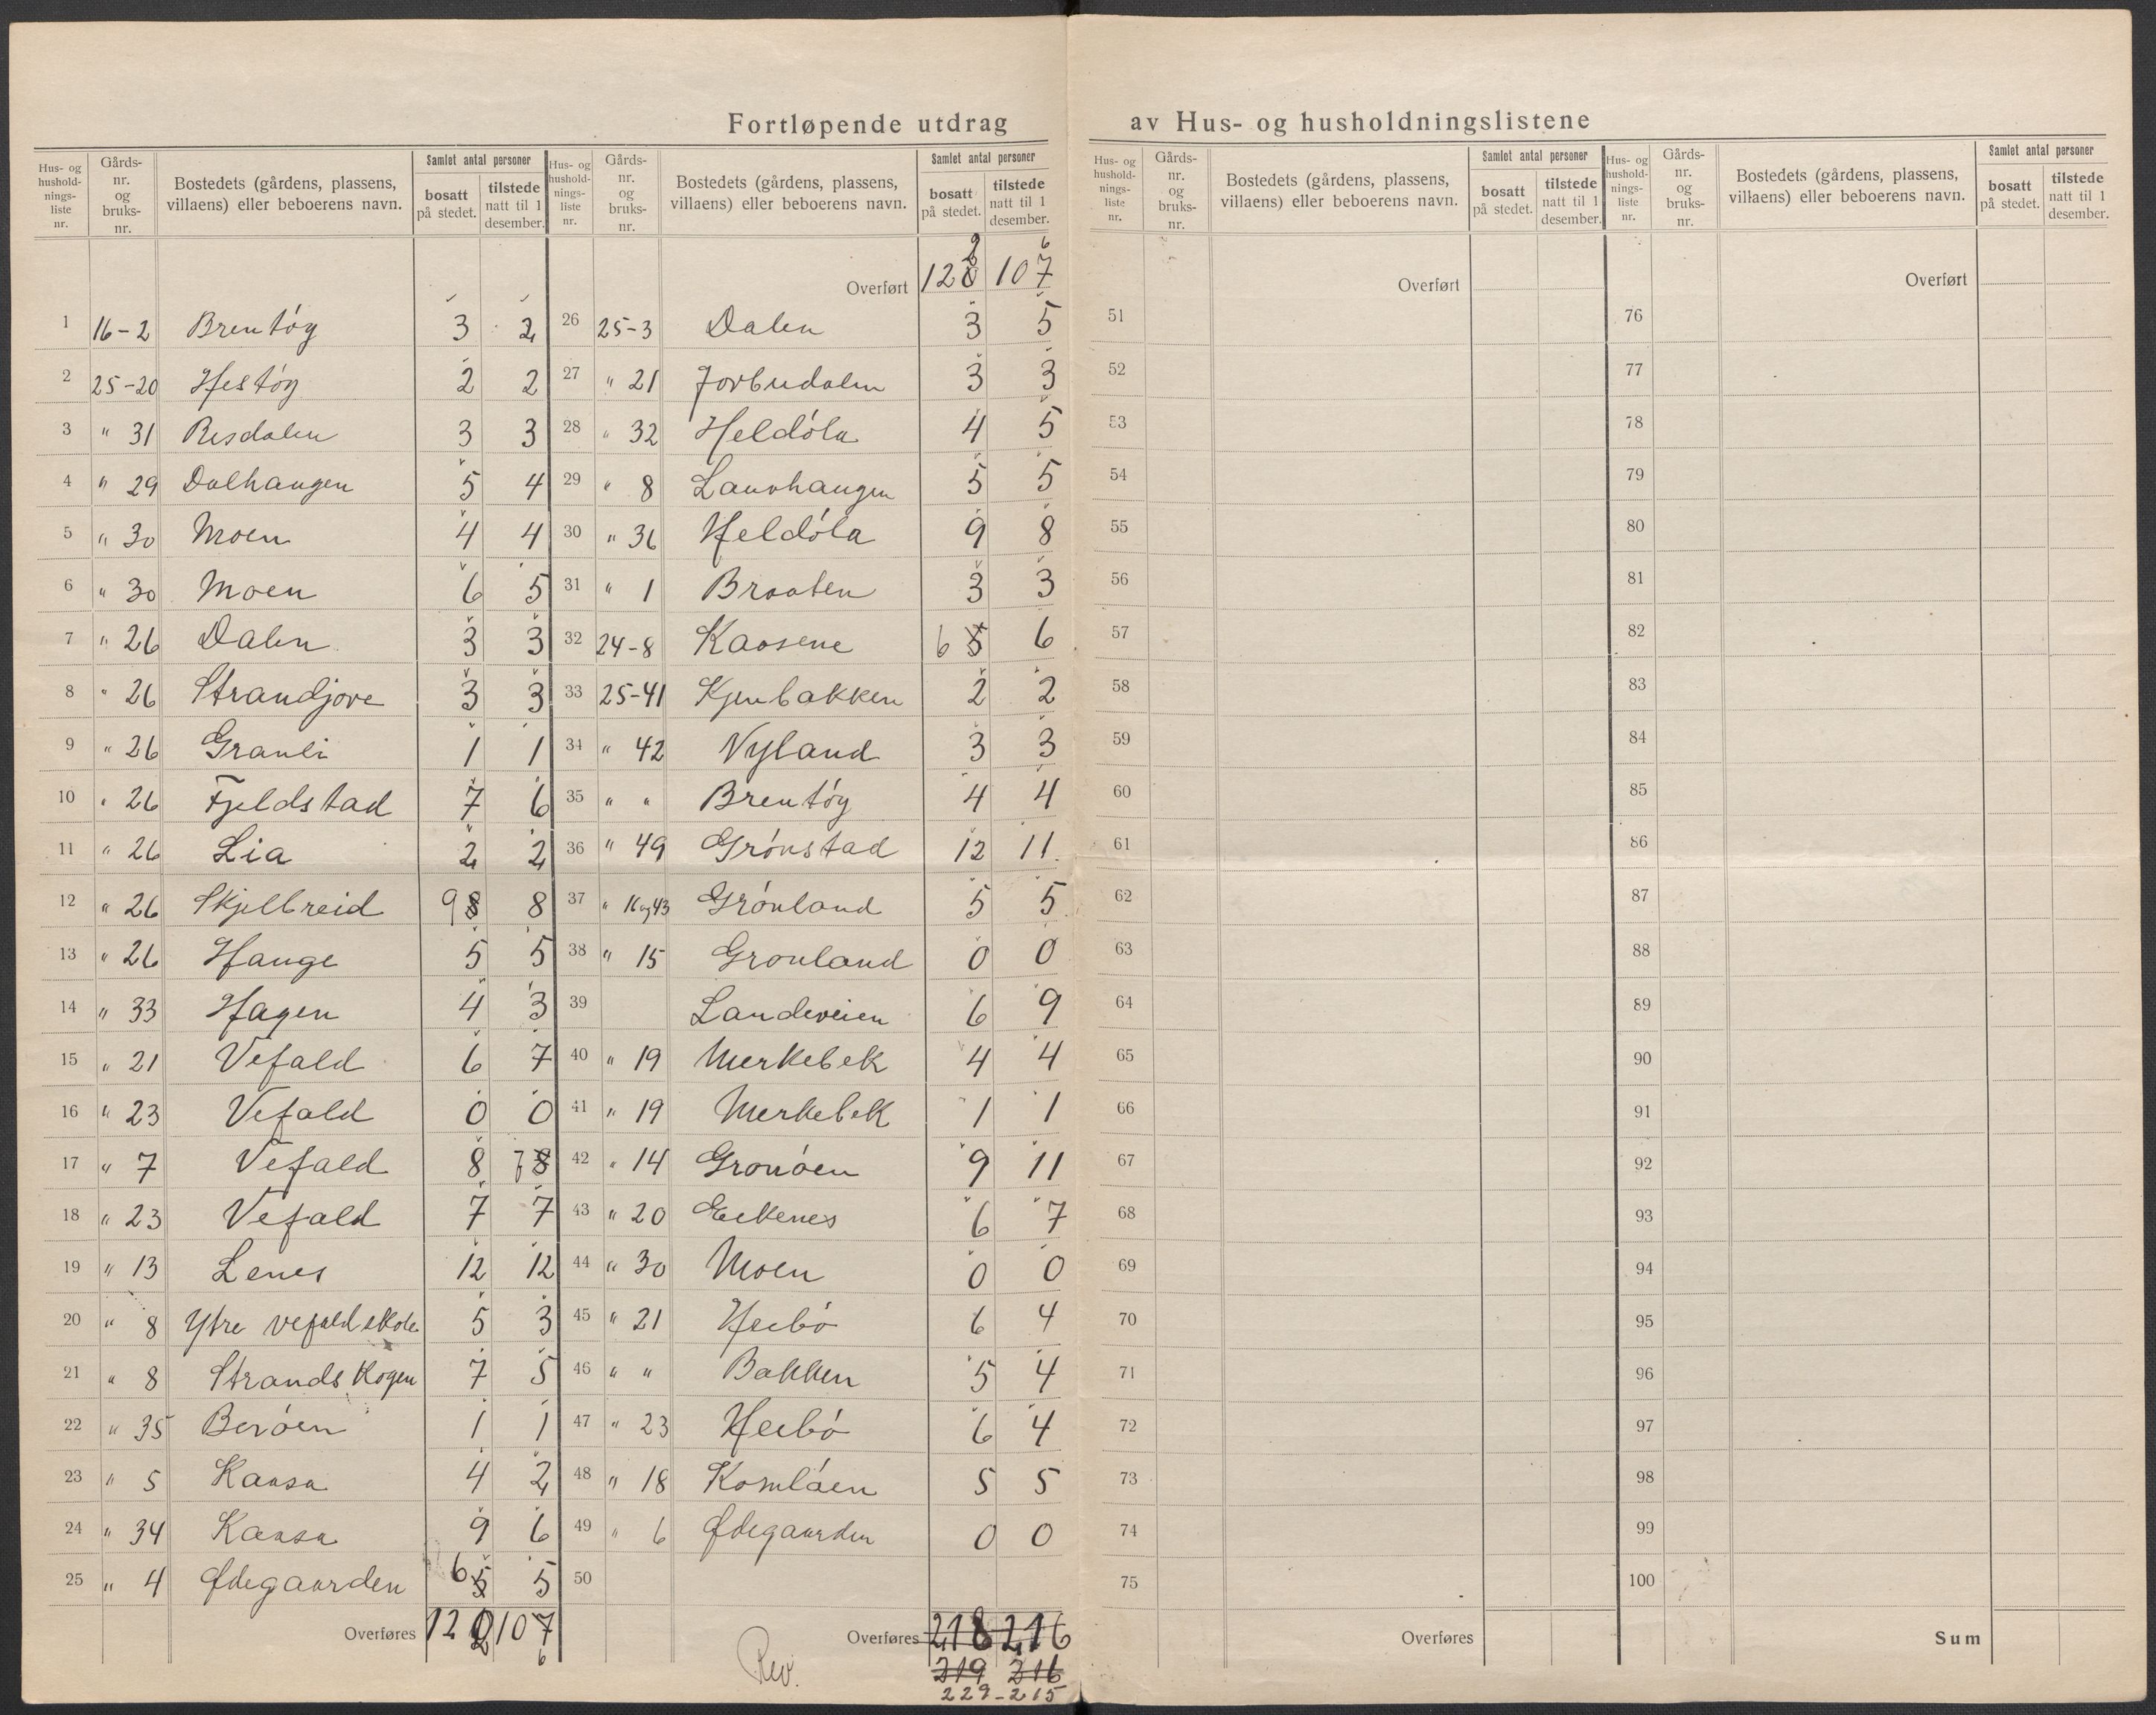 Fortløpende utdrag av Hus- og husholdningslistene
Hus- og hushold-nings-liste nr. Gårds-nr. og bruks-nr. Bostedets (gårdens, plassens, villaens) eller beboerens navn. Samlet antal personer bosatt på stedet. tilstede natt til 1 desember.
1 16-2 Brentóg 3 2
2 25-20 Hestóg 2 2
3 " 31 Risdalen 3 3
4 " 29 Dalhaugen 5 4
5 " 30 Moen 4 4
6 " 30 Moen 6 5
7 " 26 Dalen 3 3
8 " 26 Strandjore 3 3
9 " 26 Granli 1 1
10 " 26 Fjeldstad 7 6
11 " 26 Lia 2 2
12 " 26 Skjelbreid 9 8 8
13 " 26 Hauge 5 5
14 " 33 Hagen 4 3
15 " 21 Vefald 6 7
16 " 23 Vefald 0 0
17 " 7 Vefald 8 7 8
18 " 23 Vefald 7 7
19 " 13 Lenes 12 12
20 " 8 Ytre Vefald skole 5 3
21 " 8 Strandskogen 7 5
22 " 35 Beróen 1 1
23 " 5 Kaasa 4 2
24 " 34 Kaasa 9 6
25 " 4 Ødegaarden 6 5 5
Overføres 120 107
2 6
Hus- og hushold-nings-liste nr. Gårds-nr. og bruks-nr. Bostedets (gårdens, plassens, villaens) eller beboerens navn. Samlet antal personer bosatt på stedet. tilstede natt til 1 desember.
2 6
Overført 120 107
26 25-3 Dalen 3 5
27 " 21 Jorbudalen 3 3
28 " 32 Heldóla 4 5
29 " 8 Lauvhaugen 5 5
30 " 36 Heldóla 9 8
31 " 1 Braaten 3 3
32 24-8 Kaasene 6 5 6
33 25-41 Kjenbakken 2 2
34 " 42 Nyland 3 3
35 " " Brentóg 4 4
36 " 49 Grónstad 12 11
37 " 16 og 43 Grónland 5 5
38 " 15 Gronland 0 0
39 Landeveien 6 9
40 " 19 Merkebek 4 4
41 " 19 Merkebek 1 1
42 " 14 Gronóen 9 11
43 " 20 Eekenes 6 7
44 " 30 Moen 0 0
45 " 21 Heibó 6 4
46 " " Bakken 5 4
47 " 23 Heibó 6 4
48 " 18 Komlóen 5 5
49 " 6 Ødegaarden 0 0
50
Overføres 218 216
Rev. 219 216
229-215
Hus- og hushold-nings-liste nr. Gårds-nr. og bruks-nr. Bostedets (gårdens, plassens, villaens) eller beboerens navn. Samlet antal personer bosatt på stedet. tilstede natt til 1 desember.
Overført
51
52
53
54
55
56
57
58
59
60
61
62
63
64
65
66
67
68
69
70
71
72
73
74
75
Overføres
Hus- og hushold-nings-liste nr. Gårds-nr. og bruks-nr. Bostedets (gårdens, plassens, villaens) eller beboerens navn. Samlet antal personer bosatt på stedet. tilstede natt til 1 desember.
Overført
76
77
78
79
80
81
82
83
84
85
86
87
88
89
90
91
92
93
94
95
96
97
98
99
100
Sum